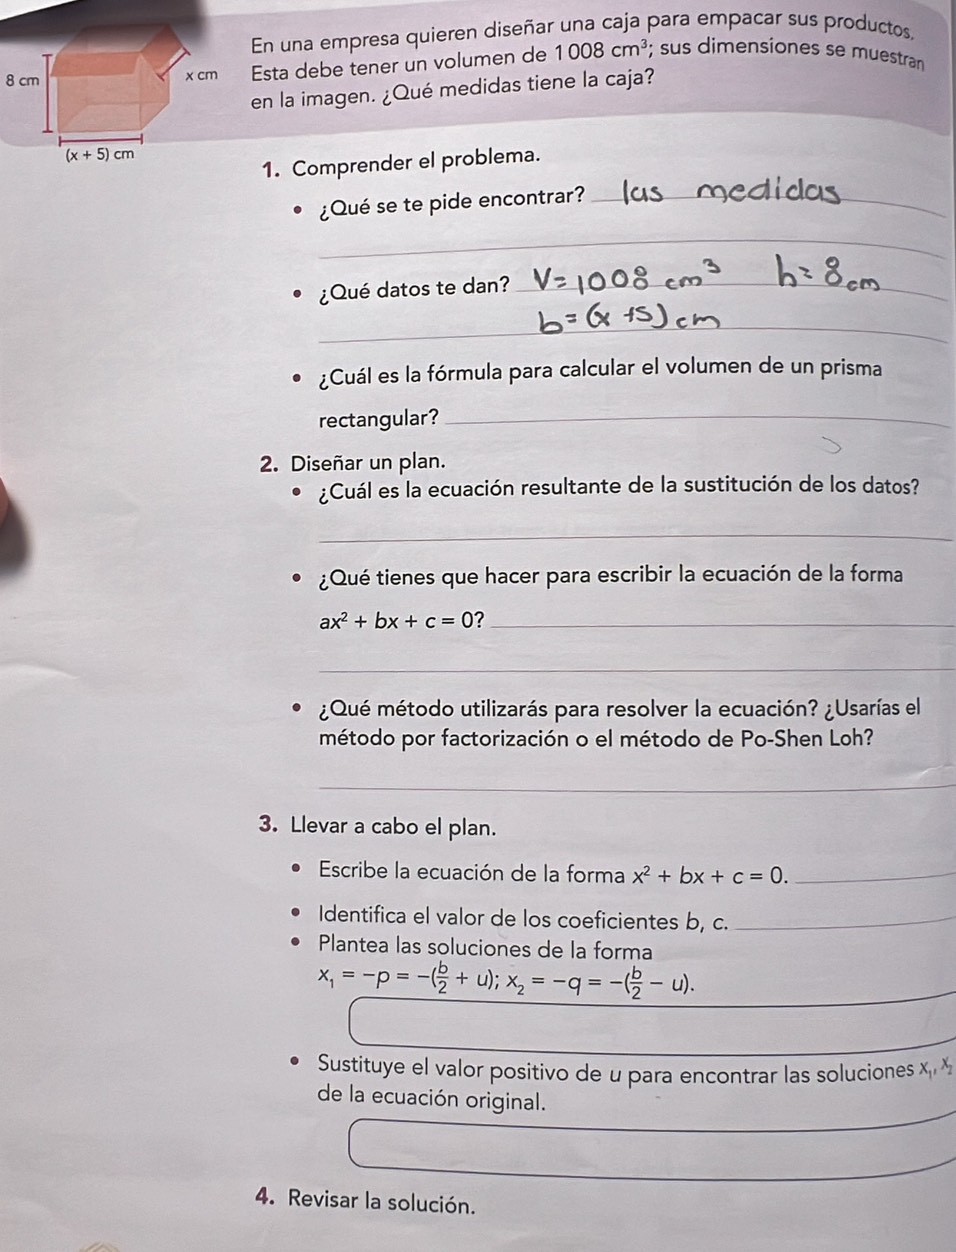 En una empresa quieren diseñar una caja para empacar sus productos.
Esta debe tener un volumen de 1 008 cm³; sus dimensiones se muestran
en la imagen. ¿Qué medidas tiene la caja?
8 cm
x cm
(x + 5) cm
1. Comprender el problema.
• ¿Qué se te pide encontrar? las medidas
• ¿Qué datos te dan? V=1008 cm³ h=8cm
b=(x+5)cm
• ¿Cuál es la fórmula para calcular el volumen de un prisma
rectangular?
2. Diseñar un plan.
• ¿Cuál es la ecuación resultante de la sustitución de los datos?
• ¿Qué tienes que hacer para escribir la ecuación de la forma
ax² + bx + c = 0?
• ¿Qué método utilizarás para resolver la ecuación? ¿Usarías el
método por factorización o el método de Po-Shen Loh?
3. Llevar a cabo el plan.
• Escribe la ecuación de la forma x² + bx + c = 0.
• Identifica el valor de los coeficientes b, c.
• Plantea las soluciones de la forma
x₁ = −p = −(b/2 + u); x₂ = −q = −(b/2 − u).
• Sustituye el valor positivo de u para encontrar las soluciones x₁, x₂
de la ecuación original.
4. Revisar la solución.